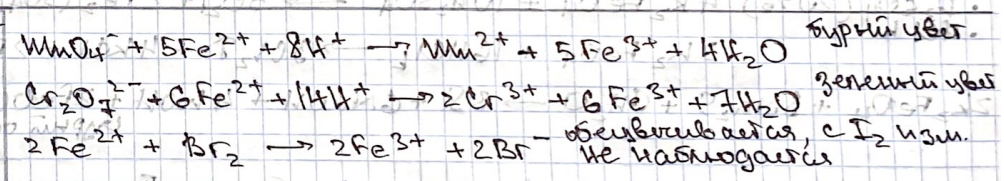 MnO₄⁻ + 5Fe²⁺ + 8H⁺ → Mn²⁺ + 5Fe³⁺ + 4H₂O бурый цвет.
Cr₂O₇²⁻ + 6Fe²⁺ + 14H⁺ → 2Cr³⁺ + 6Fe³⁺ + 7H₂O зеленый цвет
2Fe²⁺ + Br₂ → 2Fe³⁺ + 2Br⁻ обесцвечивается, с I₂ изм.
не наблюдается